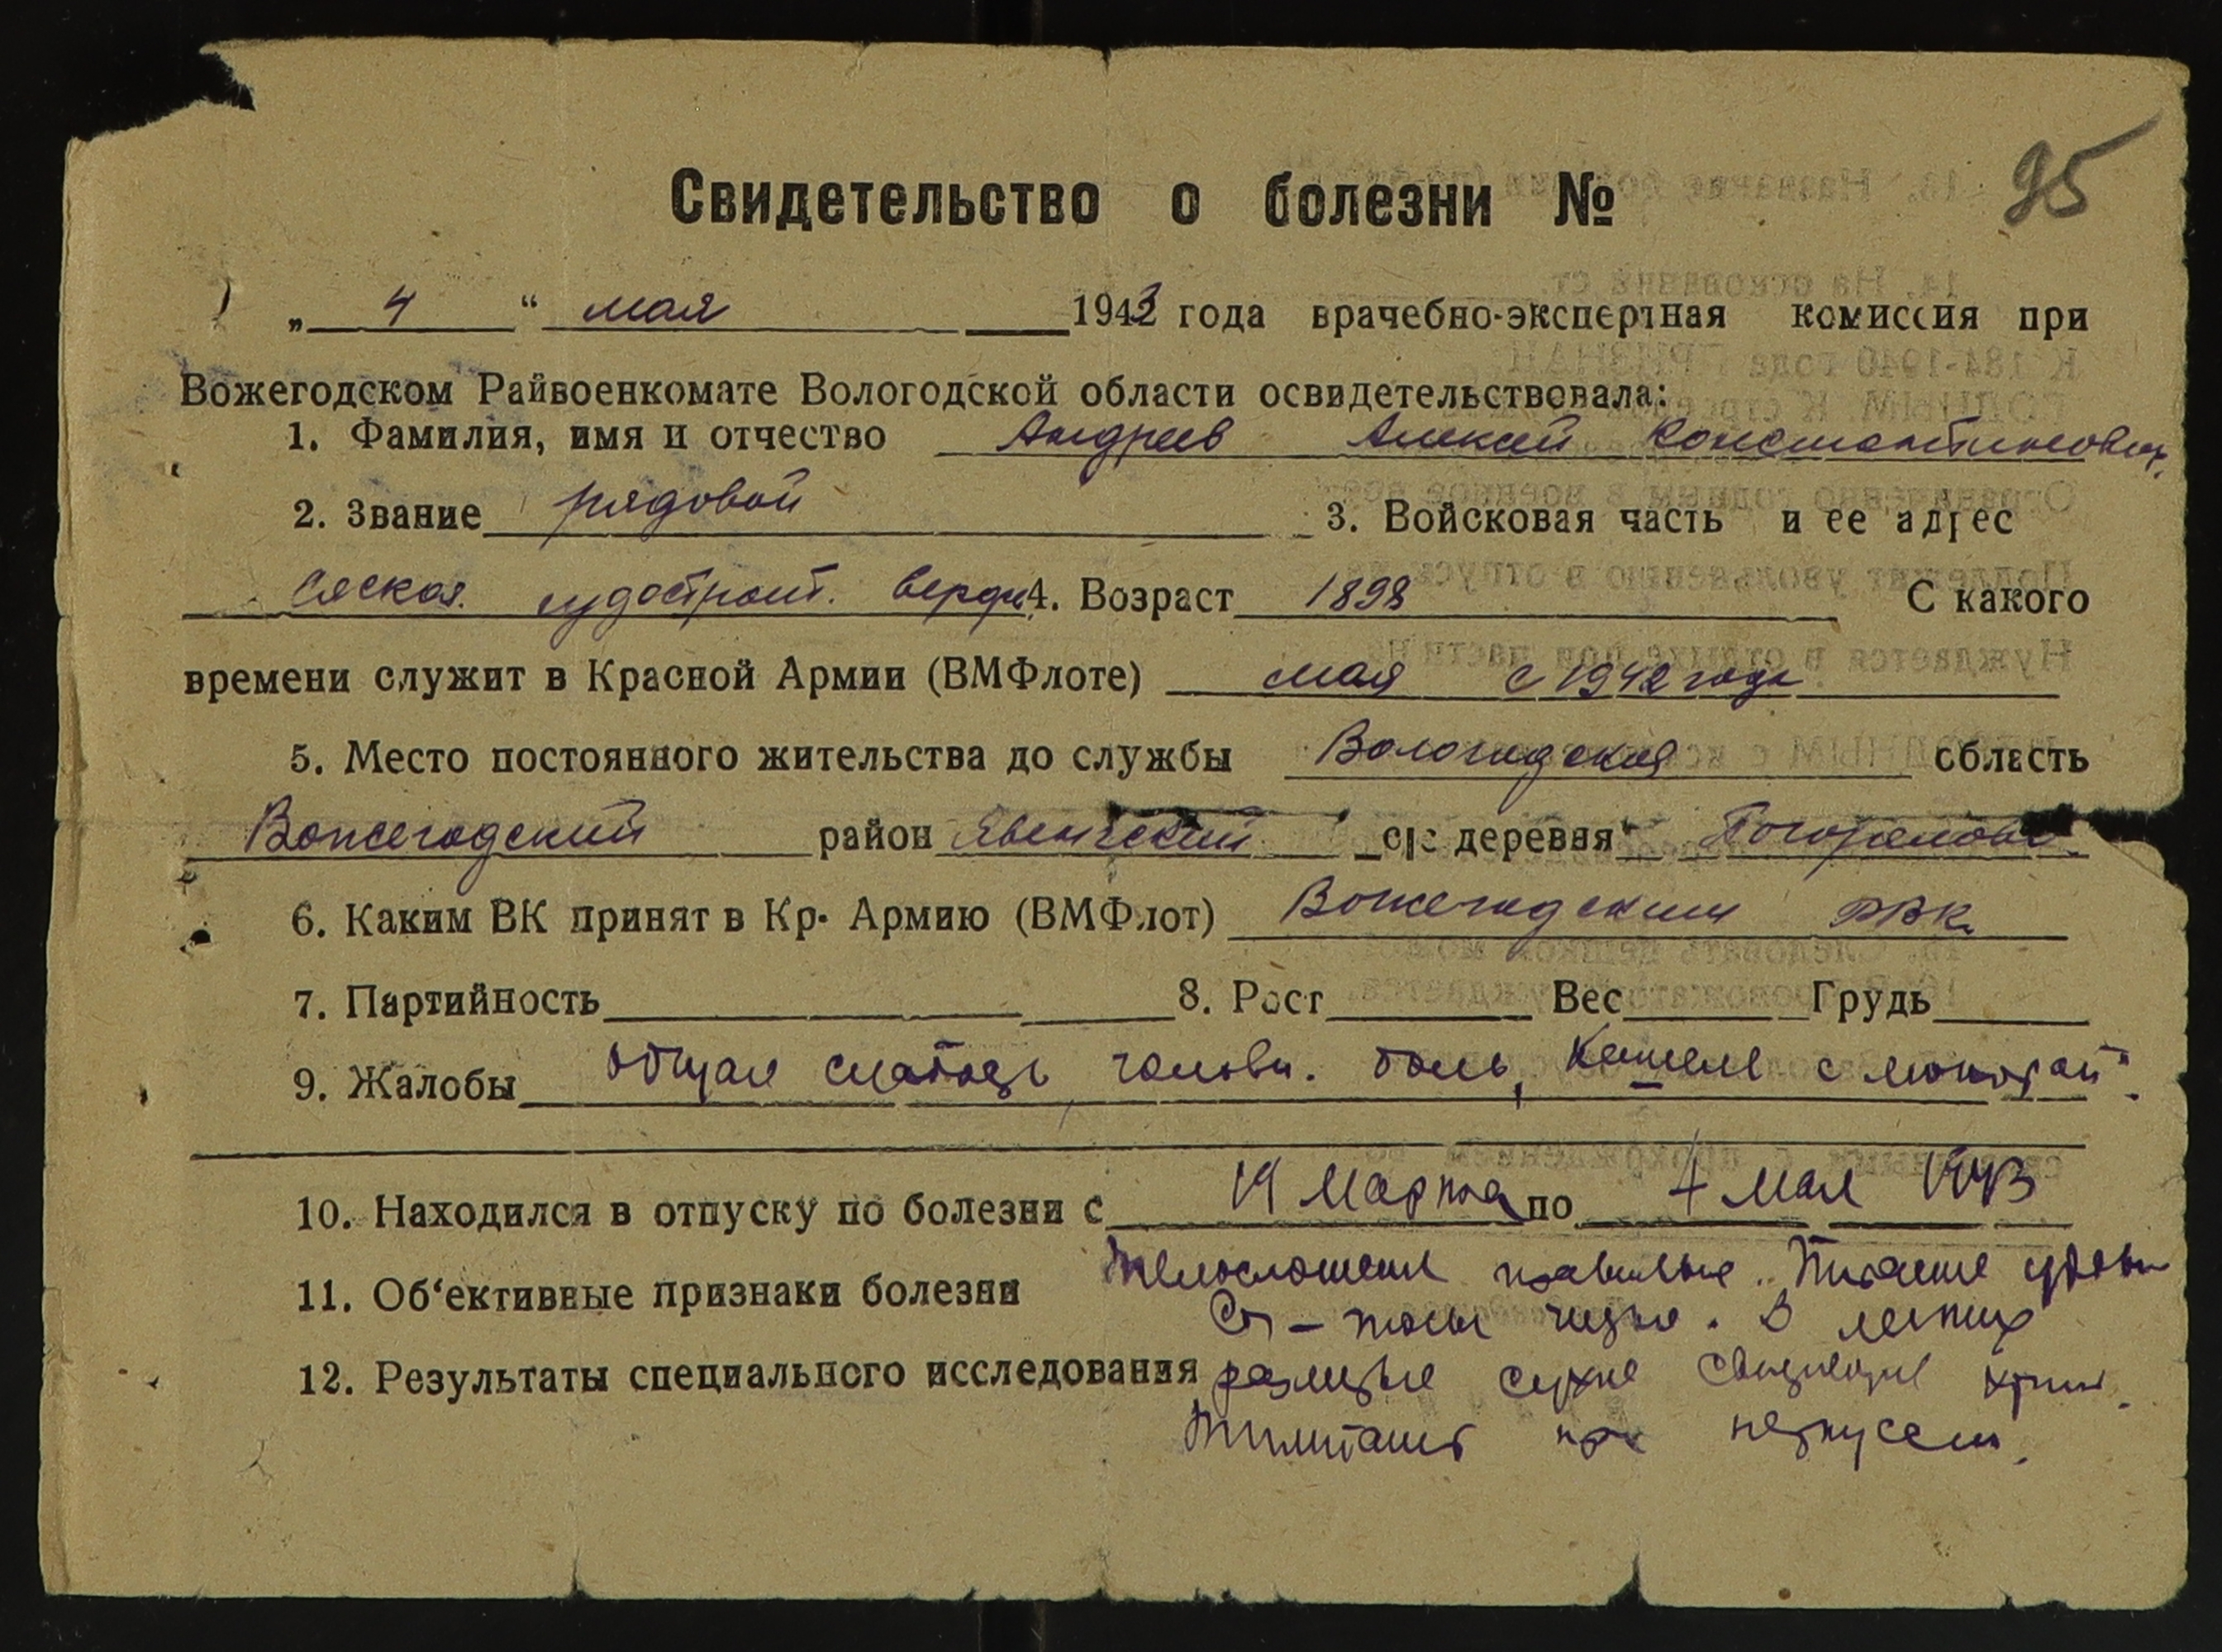 95
Свидетельство о болезни №
„ 4 “ мая 1943 года врачебно-экспертная комиссия при
Вожегодском Райвоенкомате Вологодской области освидетельствовала:
1. Фамилия, имя и отчество Андреев Алексей Константинович
2. Звание рядовой 3. Войсковая часть и ее адрес
Сяская судостроит. верфь 4. Возраст 1898 С какого
времени служит в Красной Армии (ВМФлоте) мая с 1942 года
5. Место постоянного жительства до службы Вологодская область
Вожегодский район Явенгский с/с деревня Погорелово
6. Каким ВК принят в Кр. Армию (ВМФлот) Вожегодским РВК
7. Партийность 8. Рост Вес Грудь
9. Жалобы общая слабость, головн. боль, кашель с мокротой.
10. Находился в отпуску по болезни с 19 Марта по 4 мая 1943
11. Об‘ективные признаки болезни Телосложение правильное. Питание удовл.
тоны чистые. В легких
12. Результаты специального исследования сухие хрипы.